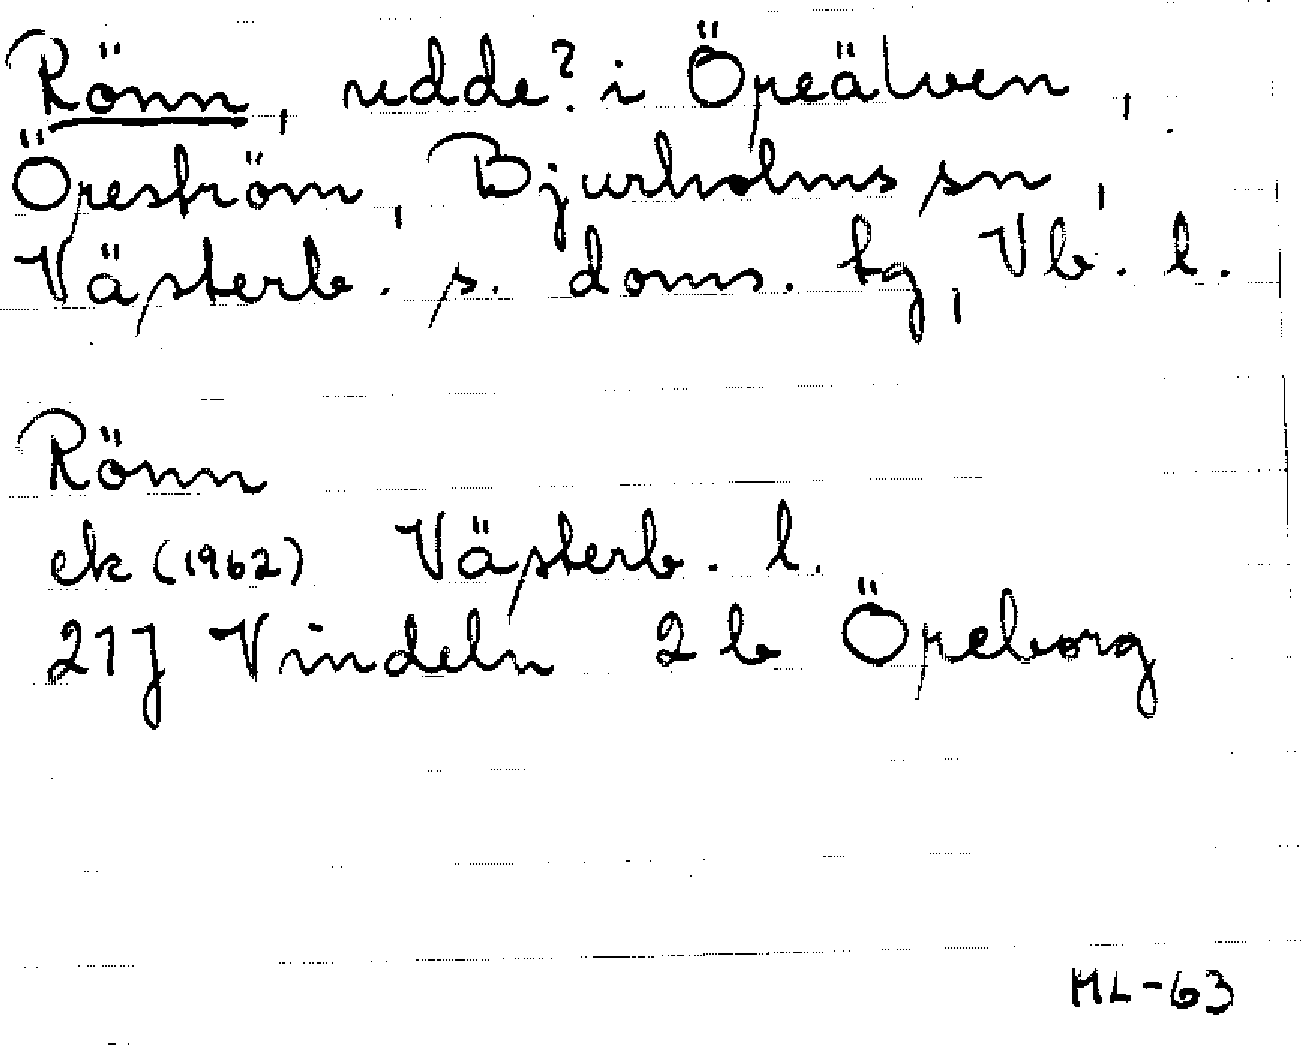 Rönn, udde? i Öreälven,
Öreström, Bjurholms sn,
Västerb. s. doms. tg, Vb. l.
Rönn
ek (1962) Västerb. l.
21J Vindeln 2b Öreborg
ML-63